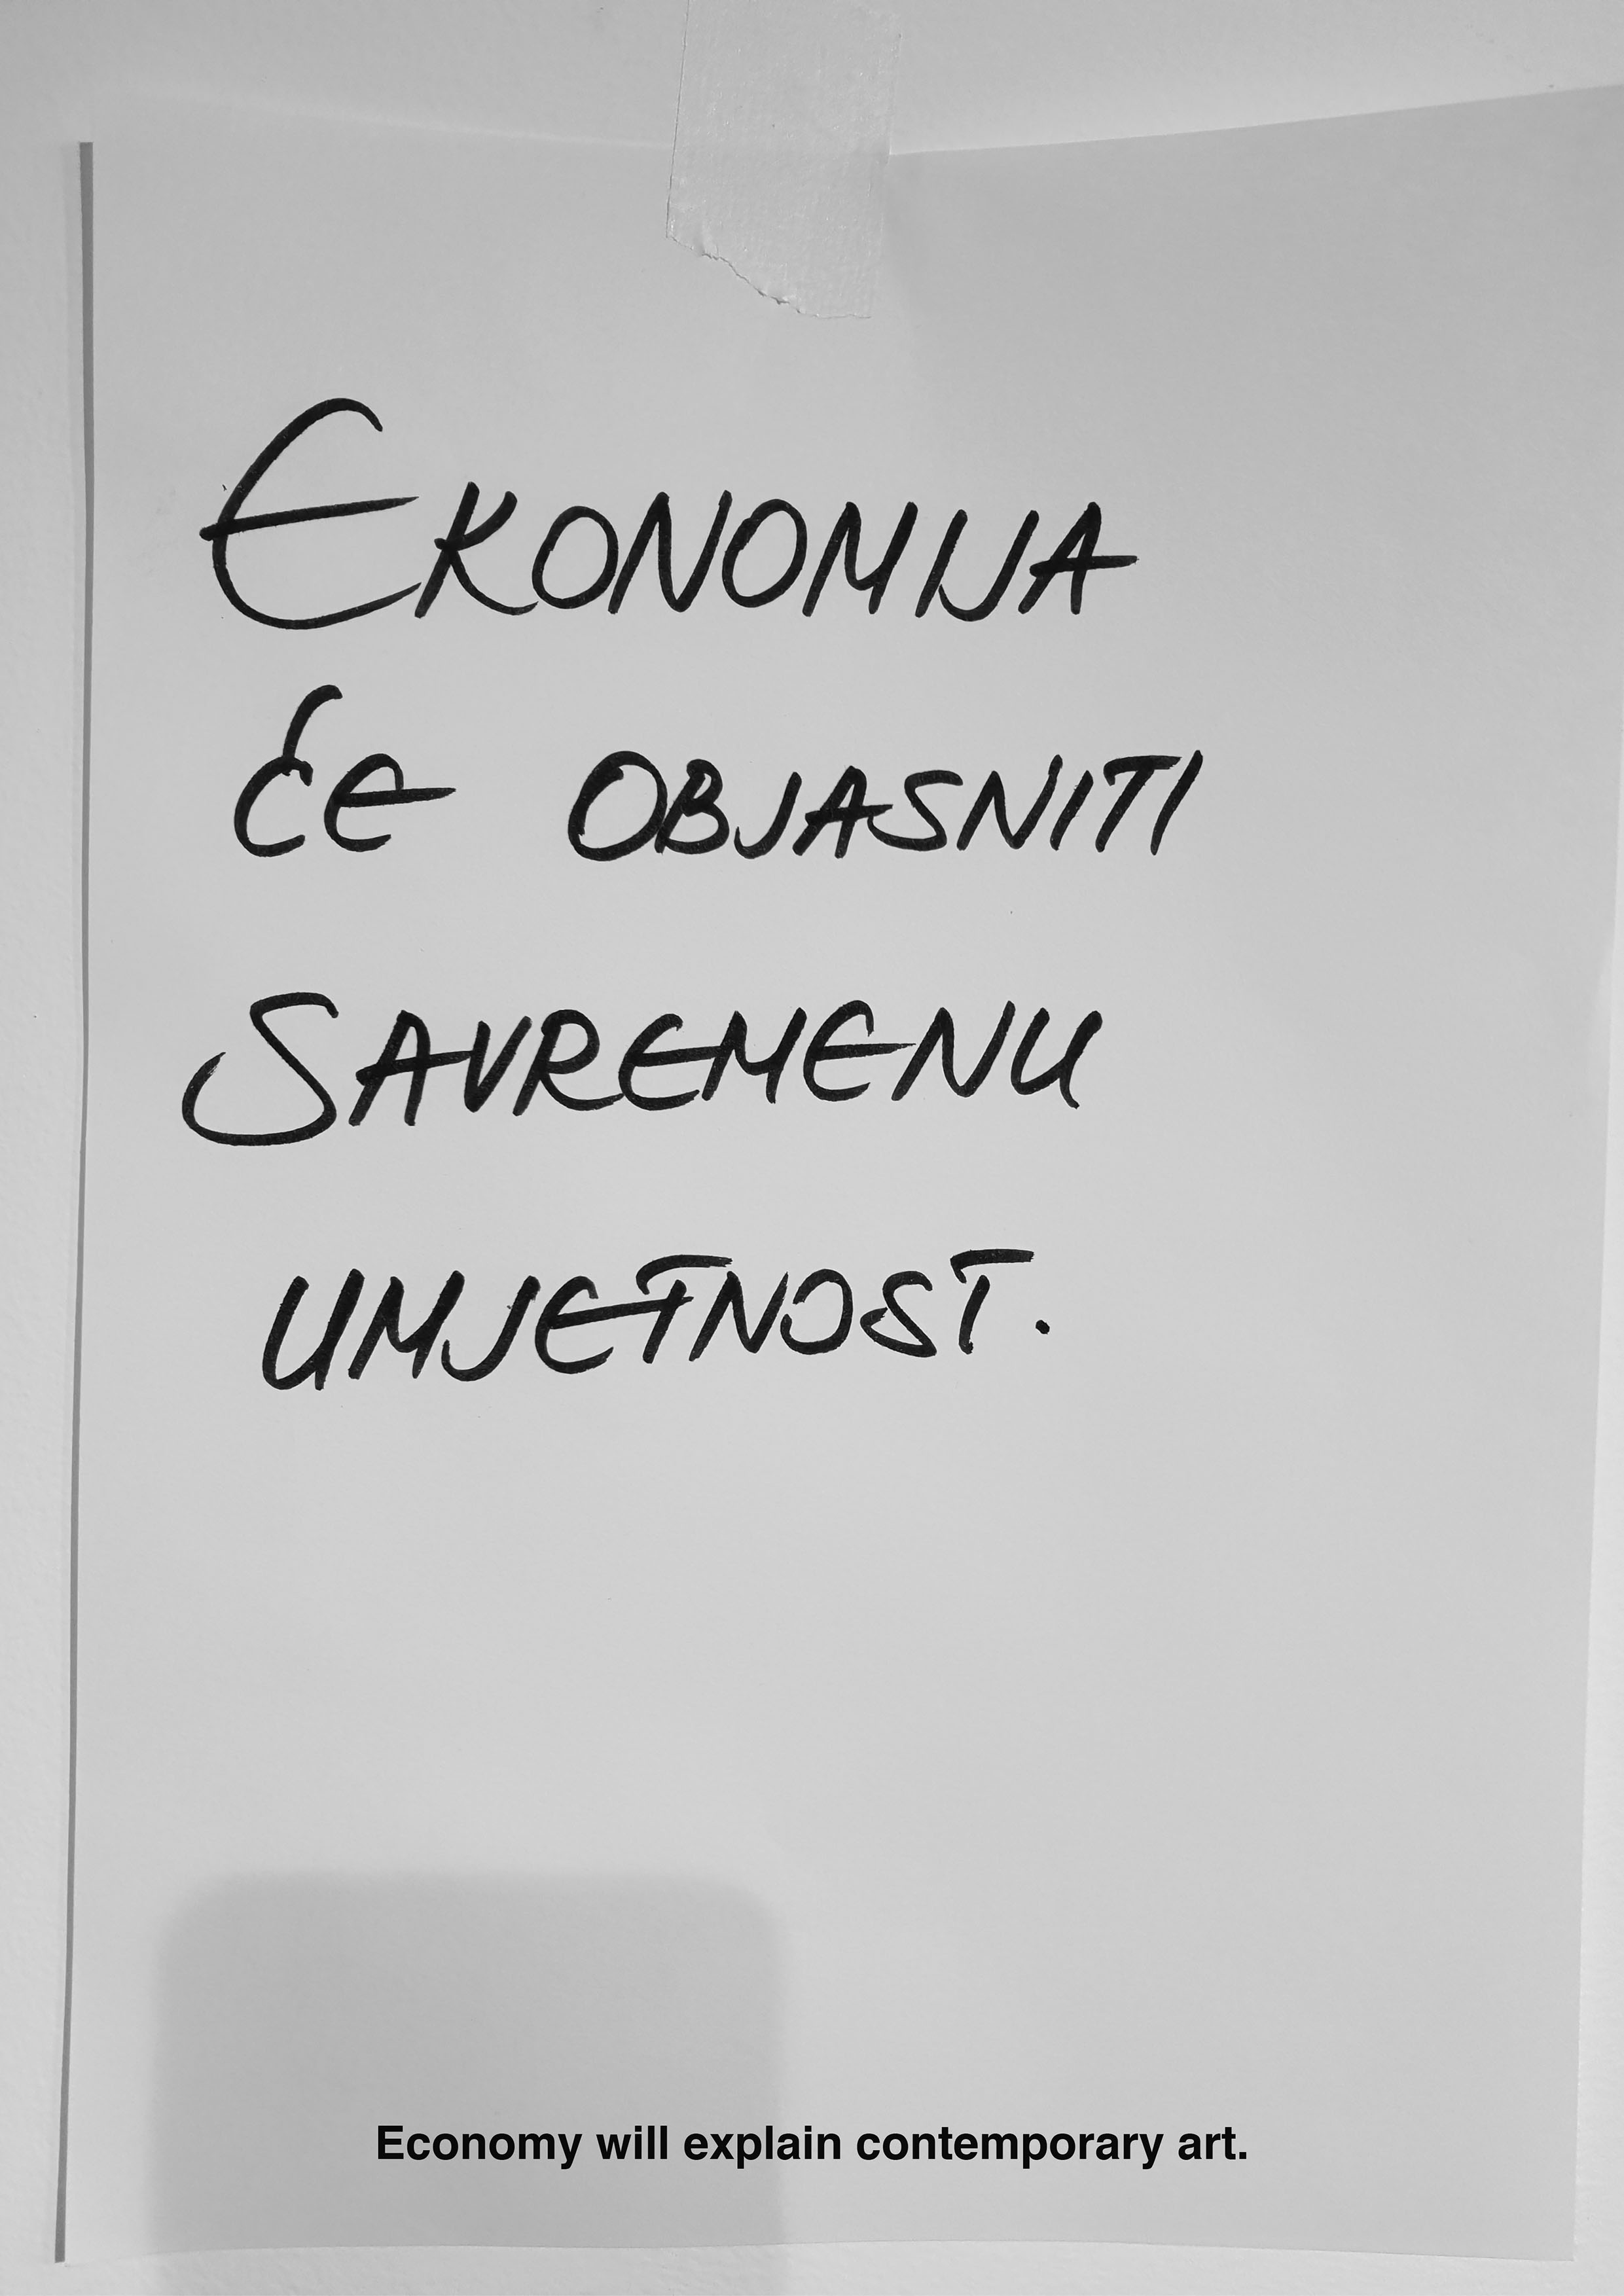 EKONOMIJA
ĆE OBJASNITI
SAVREMENU
UMJETNOST.
Economy will explain contemporary art.